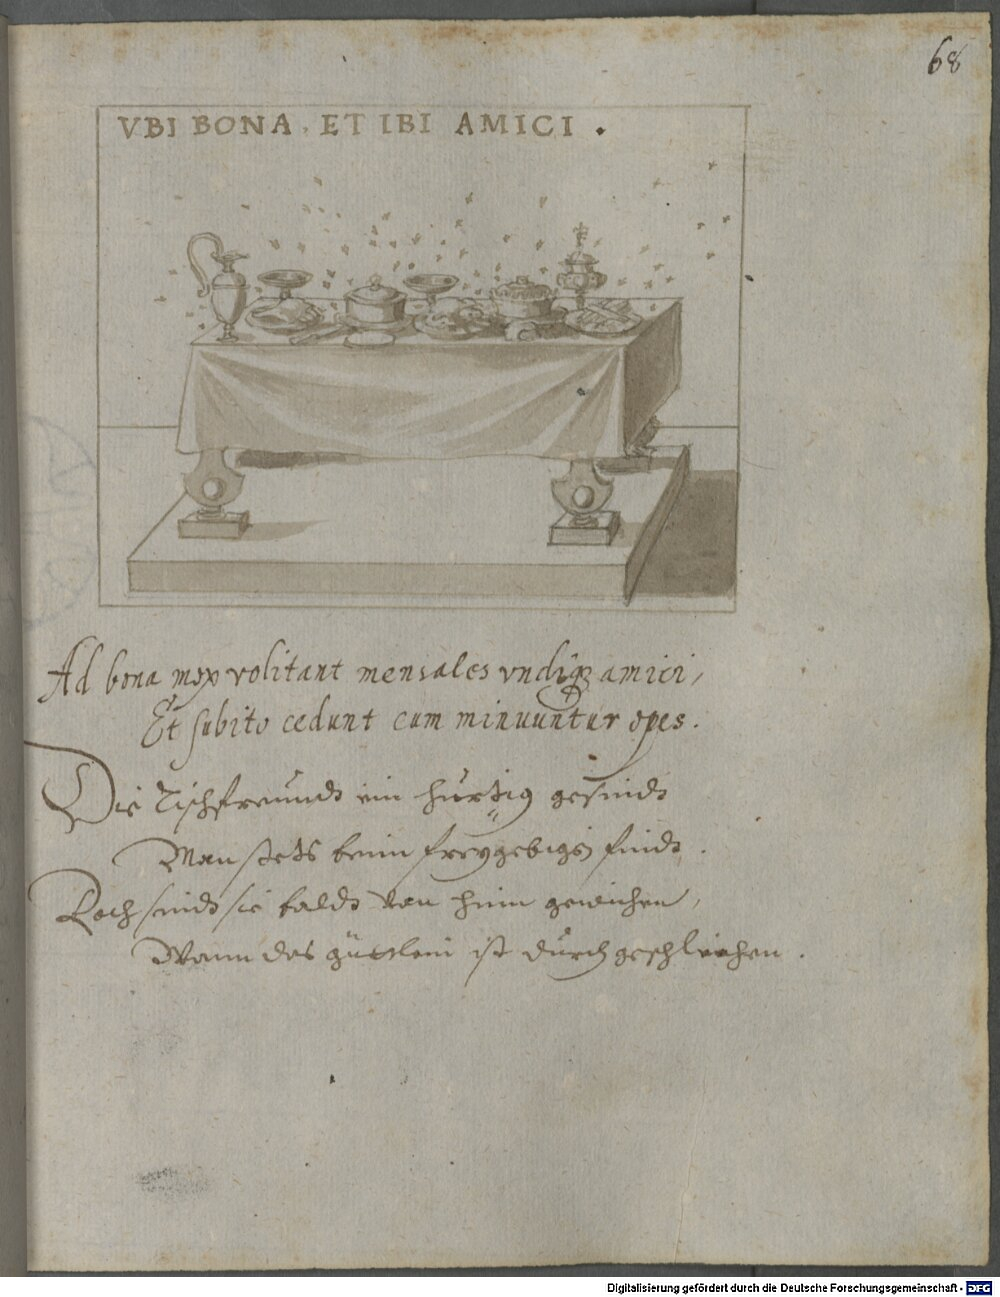 68
VBI BONA. ET IBI AMICI.
Ad bona mox volitant mensales vndiq₃ amici,
Et subito cedunt cum minuuntur opes.
Die Tischfreundt ein hurtig gesindt
Man stets beim freygebigen findt.
Doch sindt sie baldt von hinn gewichen,
Wann das güettlein ist durch geschlichen.
Digitalisierung gefördert durch die Deutsche Forschungsgemeinschaft - DFG